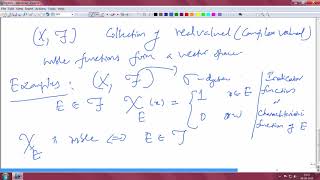 (X, F) Collection of real valued (Complex valued)
mble functions form a vector space
Examples: (X, F) σ-algebra
E ∈ F χ_E(x) = { 1 x∈E
0 o.w
Indicator function or characteristic function of E
χ_E is mble ⟺ E ∈ F